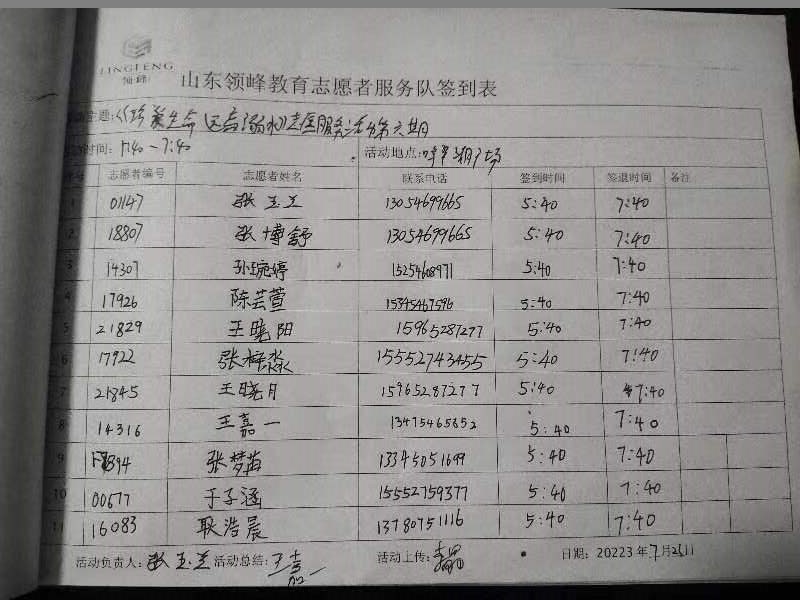 LINGFENG
领峰
山东领峰教育志愿者服务队签到表
主题:《珍爱生命 远离溺水》志愿服务活动第六期
时间: 17:40-7:40 活动地点: 广场
号 志愿者编号 志愿者姓名 联系电话 签到时间 签退时间 备注
1 01147 张玉兰 13054699665 5:40 7:40
2 18807 张博舒 13054699665 5:40 7:40
3 14307 孙琬婷 15254608971 5:40 7:40
4 17926 陈芸萱 15345467596 5:40 7:40
5 21829 王晓阳 15965287277 5:40 7:40
6 17922 张梓淼 15552743455 5:40 7:40
7 21845 王晓月 15965287277 5:40 7:40
8 14316 王嘉一 13475465852 5:40 7:40
9 张梦苒 13345051699 5:40 7:40
10 00677 于子涵 15552759377 5:40 7:40
11 16083 耿浩晨 13780751116 5:40 7:40
活动负责人: 张玉兰 活动总结: 王嘉一 活动上传: 日期: 20223年7月